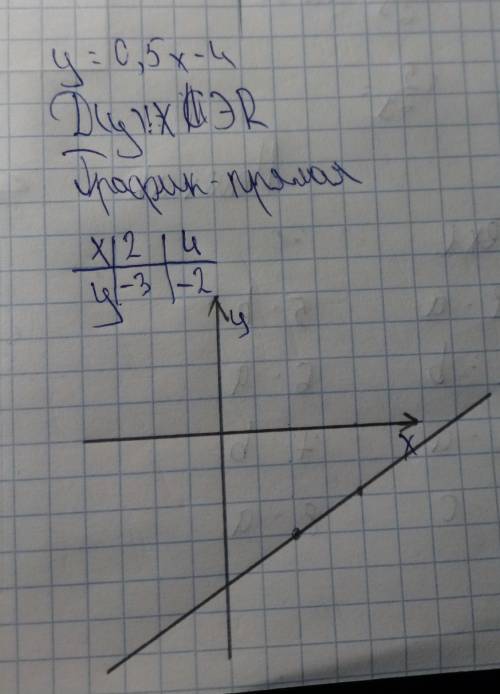 y = 0,5x-4
D(y): X ЭR
График-прямая
x 2 4
y -3 -2
y
x